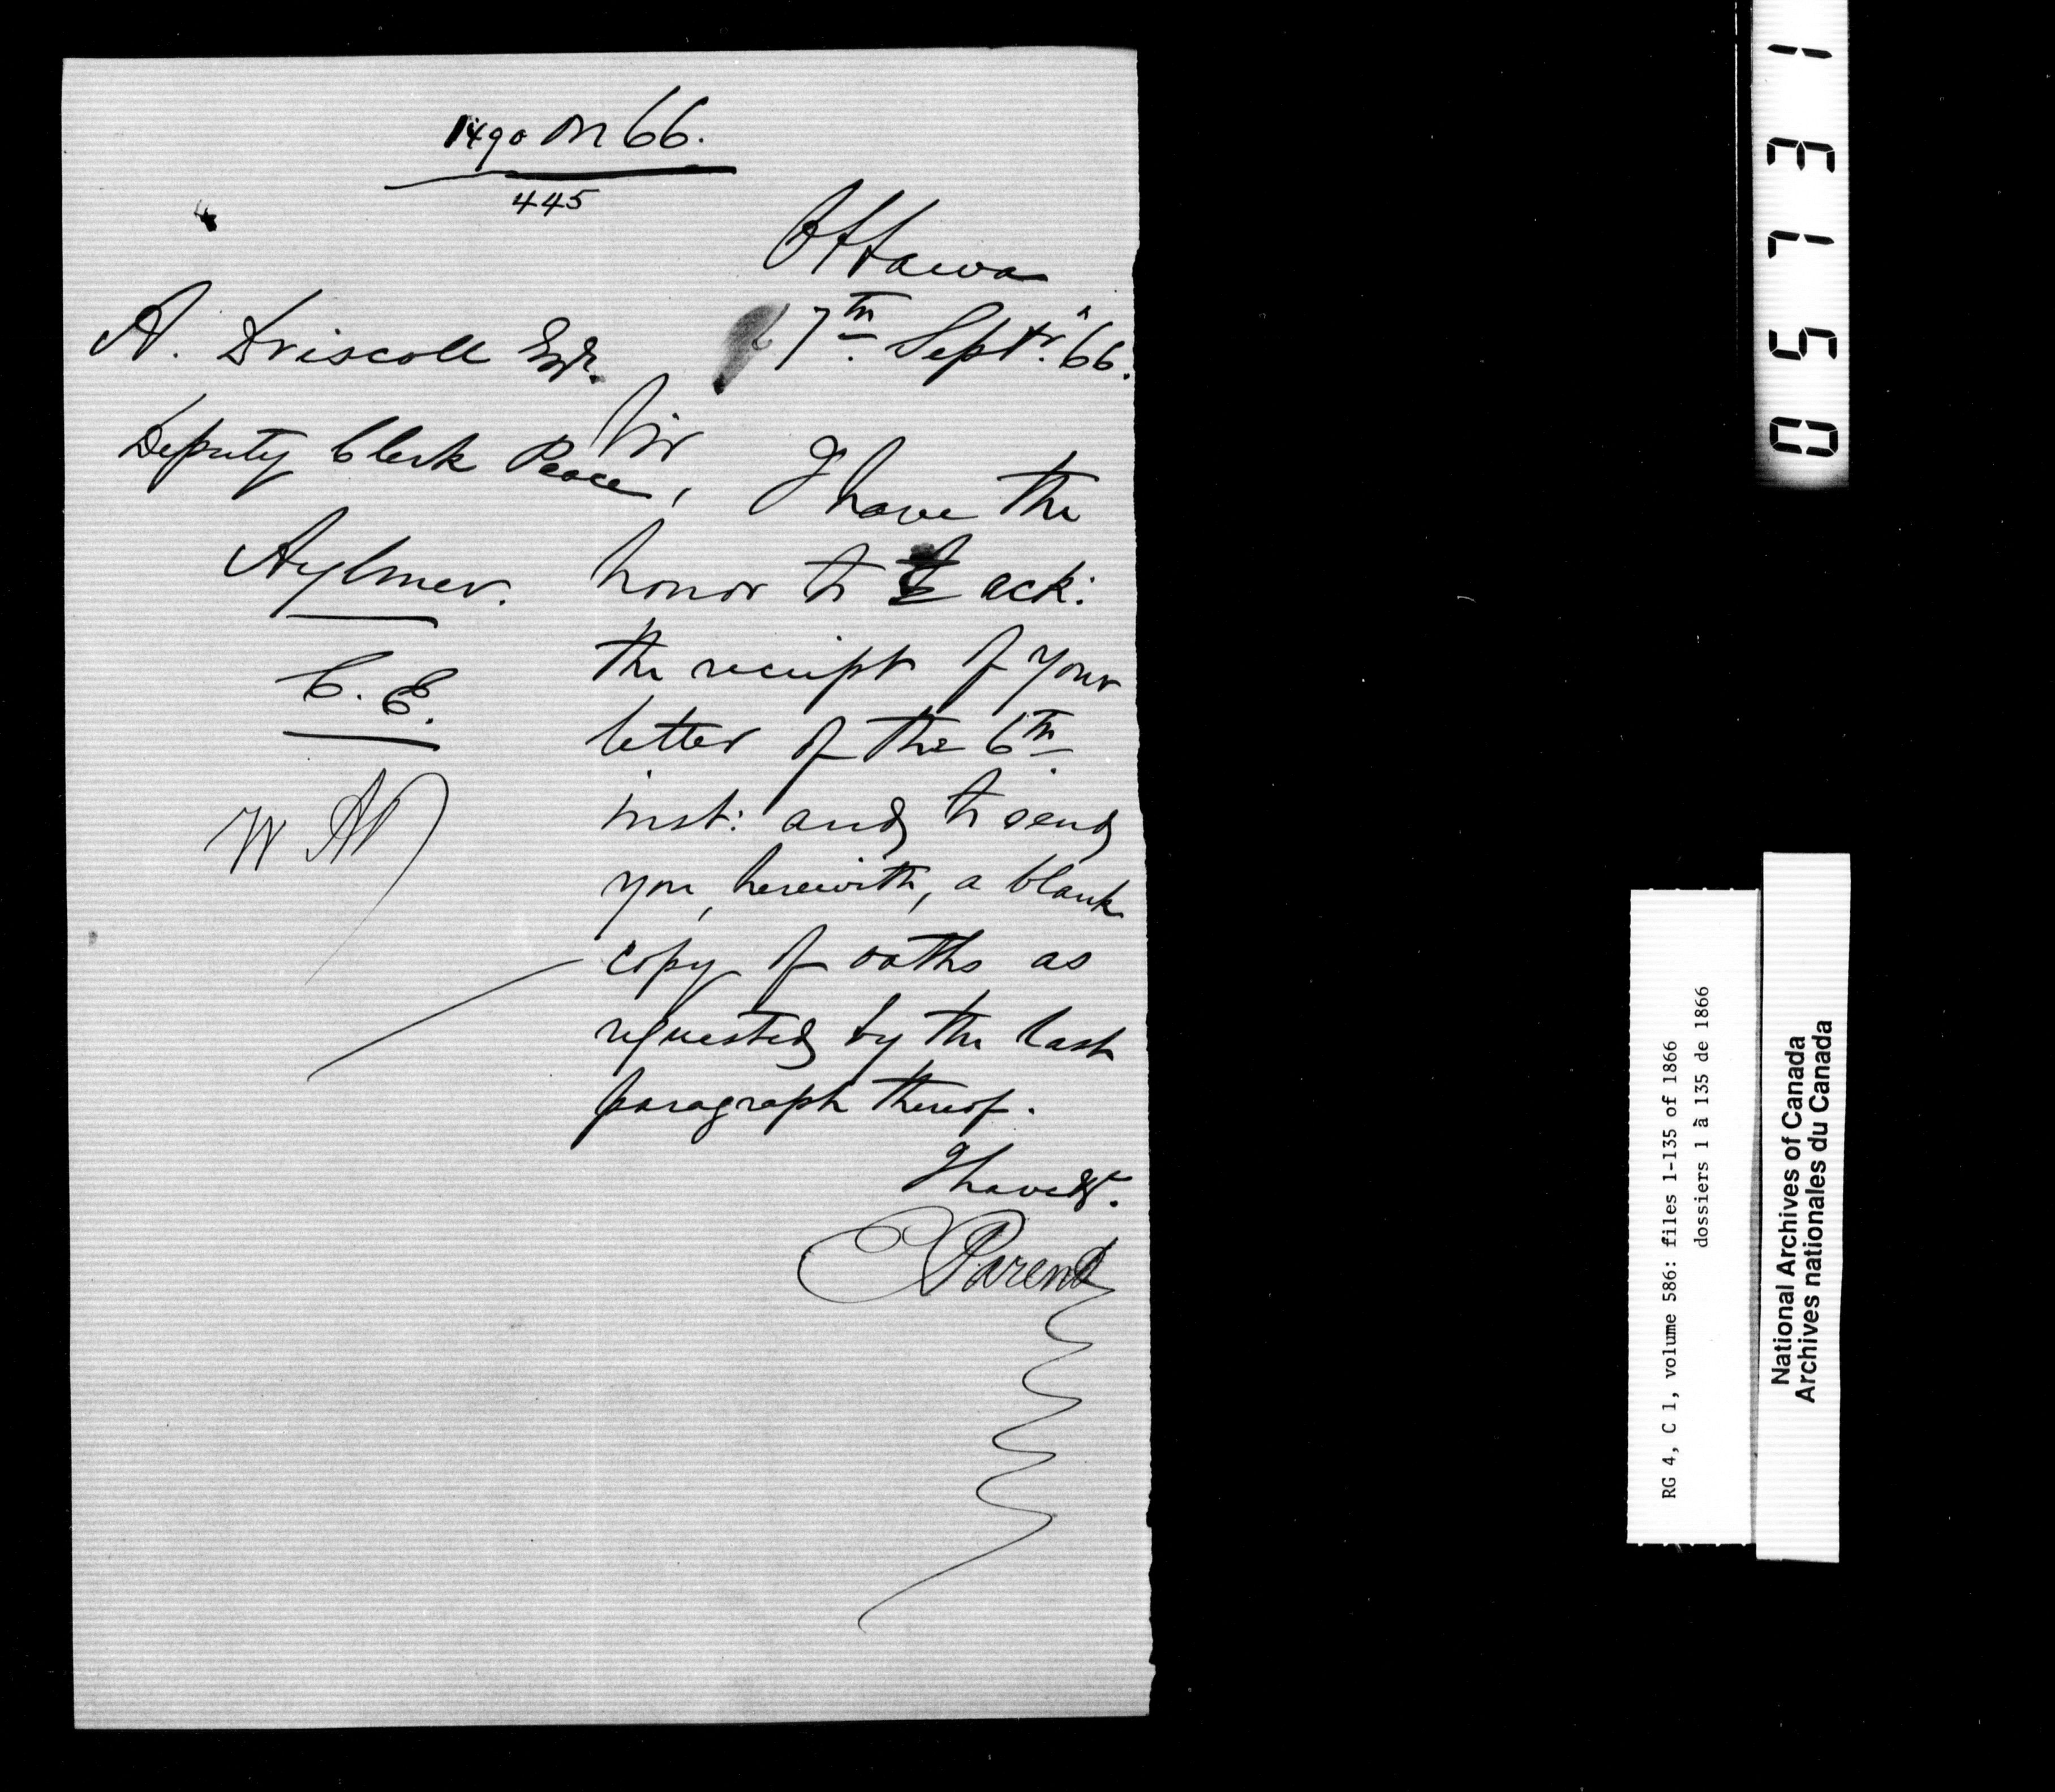 1490 on 66.
445
Ottawa
7th Septr. '66.
A. Driscoll Esqr.
Deputy Clerk Peace,
Aylmer.
C. E.
Sir
I have the
honor to ack:
the receipt of your
letter of the 6th
inst: and to send
you, herewith, a blank
copy of oaths as
requested by the last
paragraph thereof.
I have &c.
E Parent
05731
RG 4, C 1, volume 586: files 1-135 of 1866
dossiers 1 à 135 de 1866
National Archives of Canada
Archives nationales du Canada